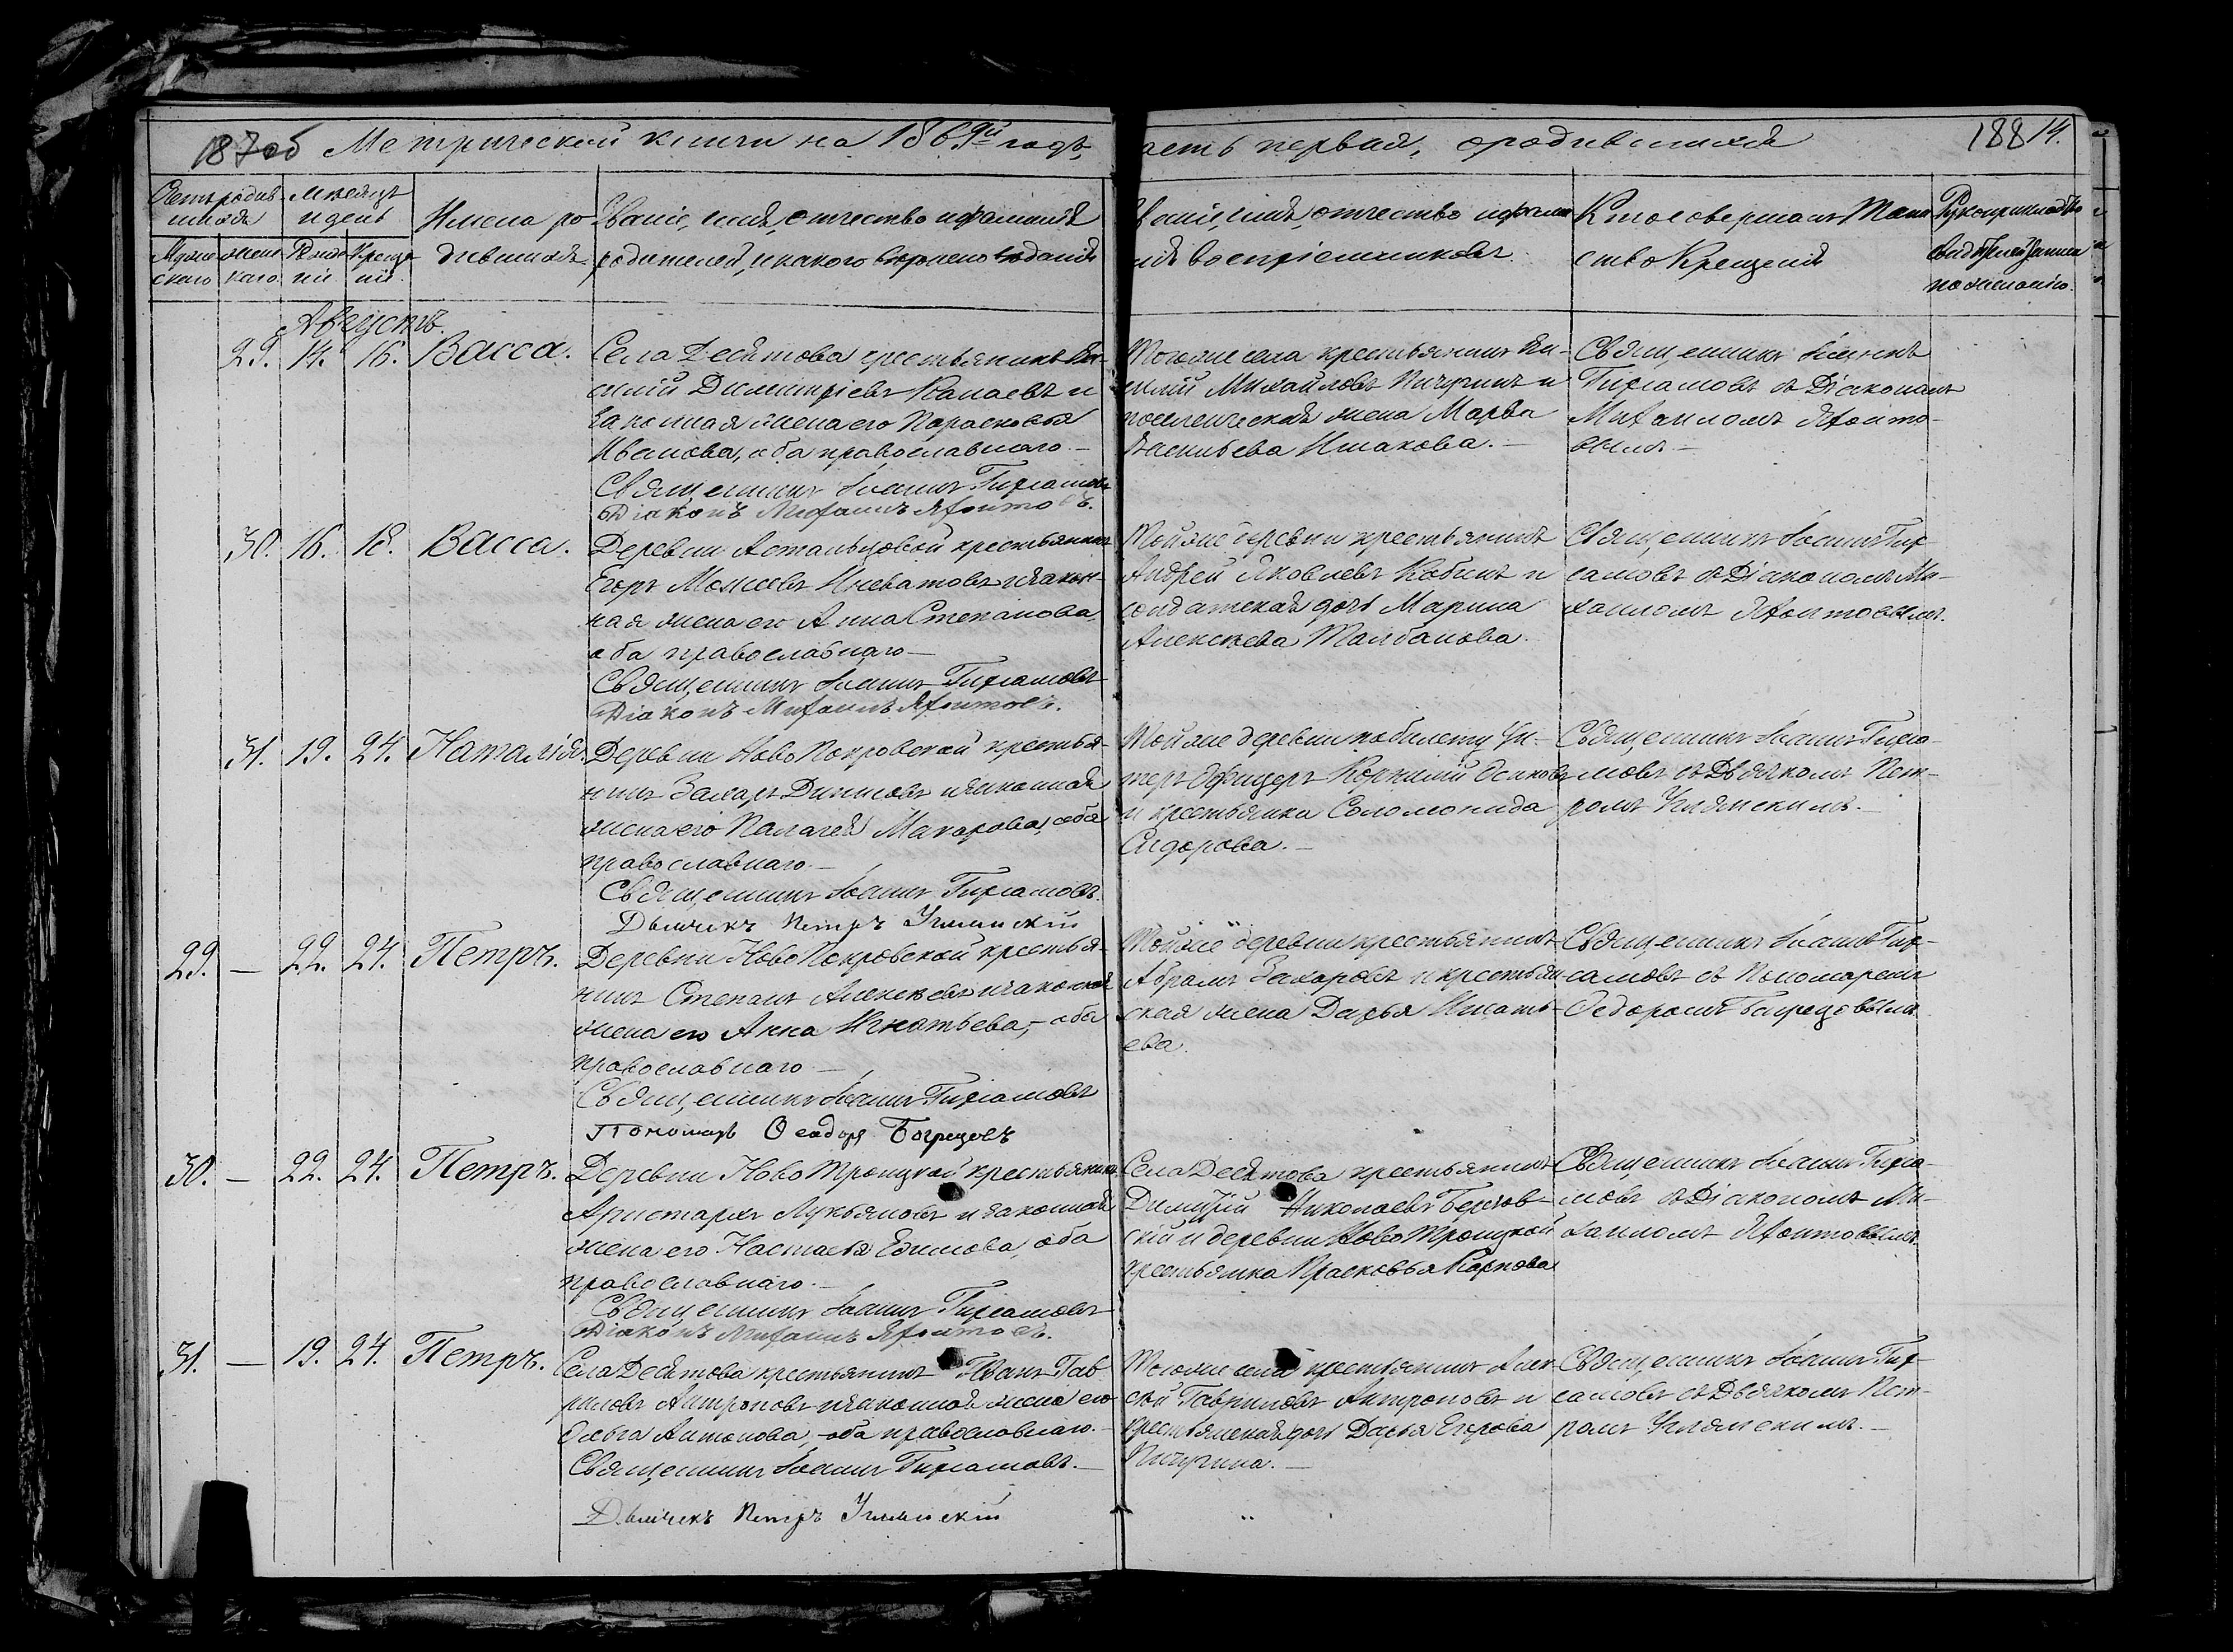 187об Метрической книги на 1869й годъ,
часть первая, о родившихся
188 14.
Счетъ родившихся
Мѣсяцъ и день
Мужескаго
Женскаго
Рожденія
Крещенія
Имена родившихся
Званіе, имя, отчество и фамилія
родителей, и какого вѣроисповѣданія
Званіе, имя, отчество и фамилія воспріемниковъ.
Кто совершалъ Таинство Крещенія
Рукоприкладство свидѣтелей записи по желанію.
Августъ.
29. 14. 16. Васса.
Села Десятова крестьянинъ Ва-
силій Димитріевъ Канаевъ и
законная жена его Парасковья
Иванова, оба православнаго.—
Священникъ Іоаннъ Гирсамовъ
Діаконъ Михаилъ Яхонтовъ.
Того же села крестьянинъ Ва-
силій Михайловъ Пичугинъ и
поселенческая жена Марѳа
Васильева Ишакова.—
Священникъ Іоаннъ
Гирсамовъ съ Діакономъ
Михаиломъ Яхонто-
вымъ.—
30. 16. 18. Васса.
Деревни Астальцовой крестьянинъ
Егоръ Моисеевъ Игнатовъ и закон-
ная жена его Анна Степанова,
оба православнаго—
Священникъ Іоаннъ Гирсамовъ
Діаконъ Михаилъ Яхонтовъ.
Той же деревни крестьянинъ
Андрей Яковлевъ Кобинъ и
солдатская дочь Марина
Алексѣева Талбанова.
Священникъ Іоаннъ Гир-
самовъ съ Діакономъ Ми-
хаиломъ Яхонтовымъ.
31. 19. 24. Наталія.
Деревни Ново Покровской крестья-
нинъ Захаръ Дининовъ и законная
жена его Палагея Макарова, оба
православнаго.—
Священникъ Іоаннъ Гирсамовъ.
Дьячекъ Петръ Углянскій
Той же деревни по билету Ун-
теръ Офицеръ Корнилій Осиповъ
и крестьянка Соломонида
Сидорова.—
Священникъ Іоаннъ Гирса-
мовъ съ Дьячкомъ Пет-
ромъ Углянскимъ.—
29. — 22. 24. Петръ.
Деревни Ново Покровской крестья-
нинъ Степанъ Алексѣевъ и законная
жена его Анна Игнатьева,— оба
православнаго—
Священникъ Іоаннъ Гирсамовъ
Пономарь Ѳеодоръ Багрецовъ
Той же деревни крестьянинъ
Абрамъ Захаровъ и крестьян-
ская жена Дарья Игнать-
ева.
Священникъ Іоаннъ Гир-
самовъ съ Пономаремъ
Ѳедоромъ Багрецовымъ
30. — 22. 24. Петръ.
Деревни Ново Троицкой крестьянинъ
Аристархъ Лукьяновъ и законная
жена его Настасья Ефимова, оба
православнаго.—
Священникъ Іоаннъ Гирсамовъ
Діаконъ Михаилъ Яхонтовъ.
Села Десятова крестьянинъ
Димитрій Николаевъ
и деревни Ново Троицкой
крестьянка Прасковья Карпова
Священникъ Іоаннъ Гирса-
мовъ съ Діакономъ Ми-
хаиломъ Яхонтовымъ.
31. — 19. 24. Петръ.
Села Десятова крестьянинъ Иванъ Гав-
риловъ Антроповъ и законная жена его
Ольга Антонова,— оба православнаго.—
Священникъ Іоаннъ Гирсамовъ.—
Дьячекъ Петръ Углянскій
Того же села крестьянинъ Алек-
сѣй Гавриловъ Антроповъ и
крестьянская дочь Дарья Егорова
Пичугина.—
Священникъ Іоаннъ Гир-
самовъ съ Дьячкомъ Пет-
ромъ Углянскимъ.—